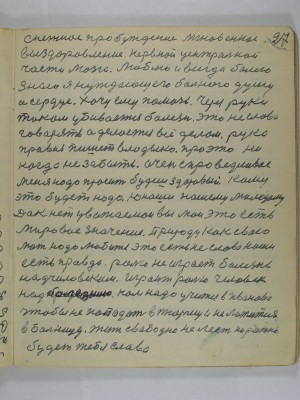 27
снежное пробуждение мгновенное
выздоровление нервной центральной
часть мозга. Люблю и всегда болею
знаю я нуждающего больного душу
и сердце. Хочу ему помочь. Через руки
током убивается болезнь. Это не слова
говорять а делается всё делом, рука
правая пишет владыка. про это ни
когда не забыть. Очень справедливое
меня надо просить будеш здоровый. Кому
это будеть надо. юноши нашему молодому
Дак нет уважаемои вы мои это есть
мировое значения. природу как свою
мать надо любить это есть не слова наши
есть правда. ролю не играеть болезнь
над человеком. играить ролю человек
над болезнию. Нам надо учится у Иванова
чтобы не попадать в тюрму и не ложится
в больницу. Жить свободно не лезть на рожно
будет тебя слава